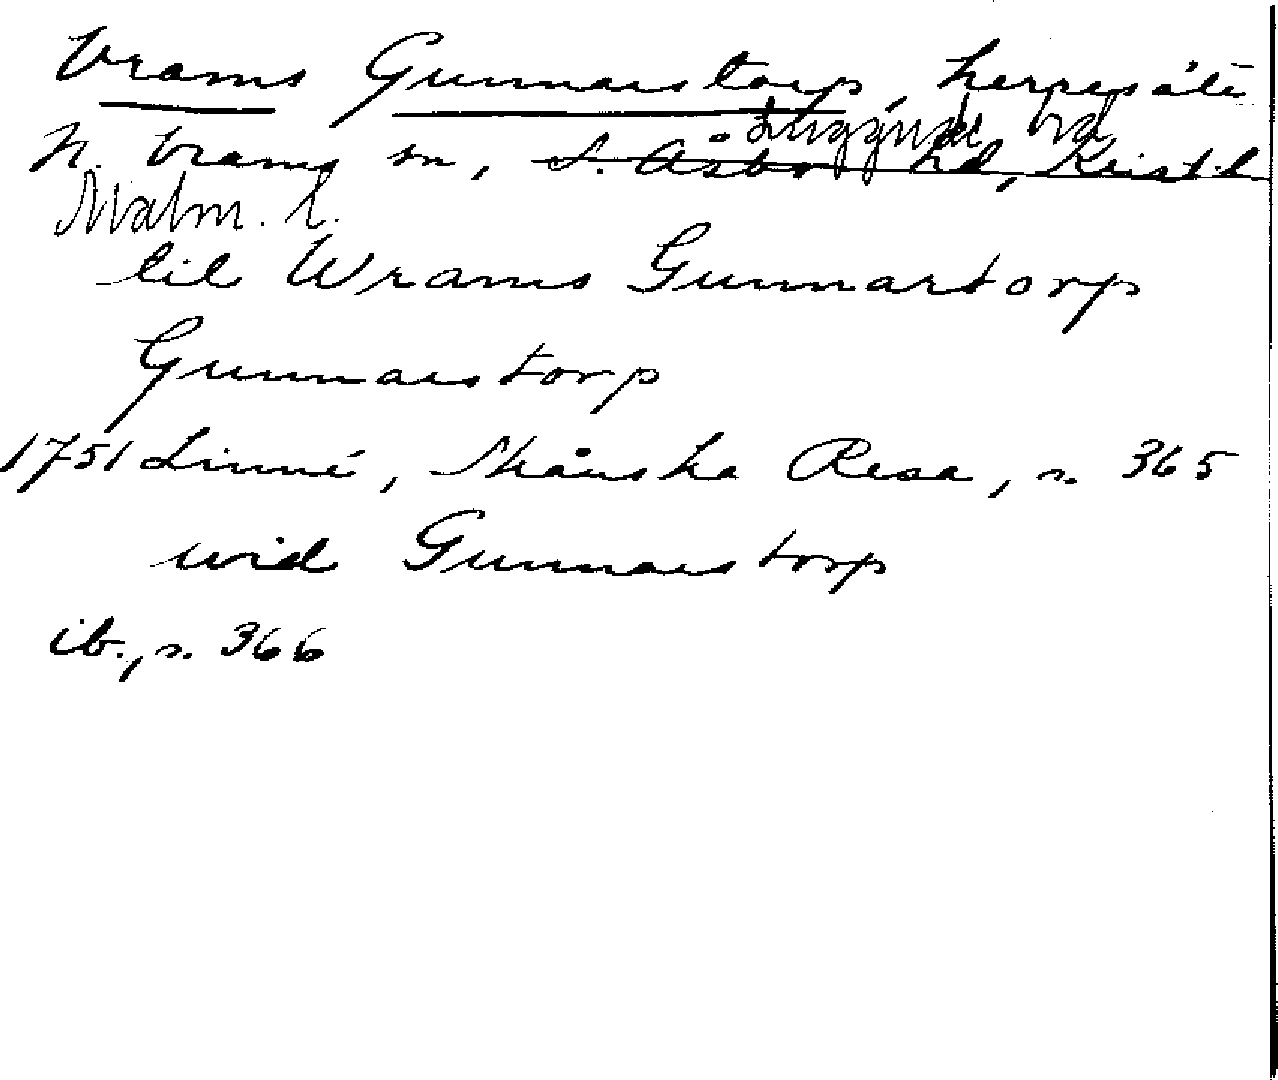 Vrams Gunnarstorp, herresäte
Luggude hd
N. Vrams sn, S. Åsbo hd, Krist. l
Malm. l.
til Wrams Gunnartorp
Gunnarstorp
1751 Linné, Skånska Resa, s. 365
wid Gunnarstorp
ib., s. 366